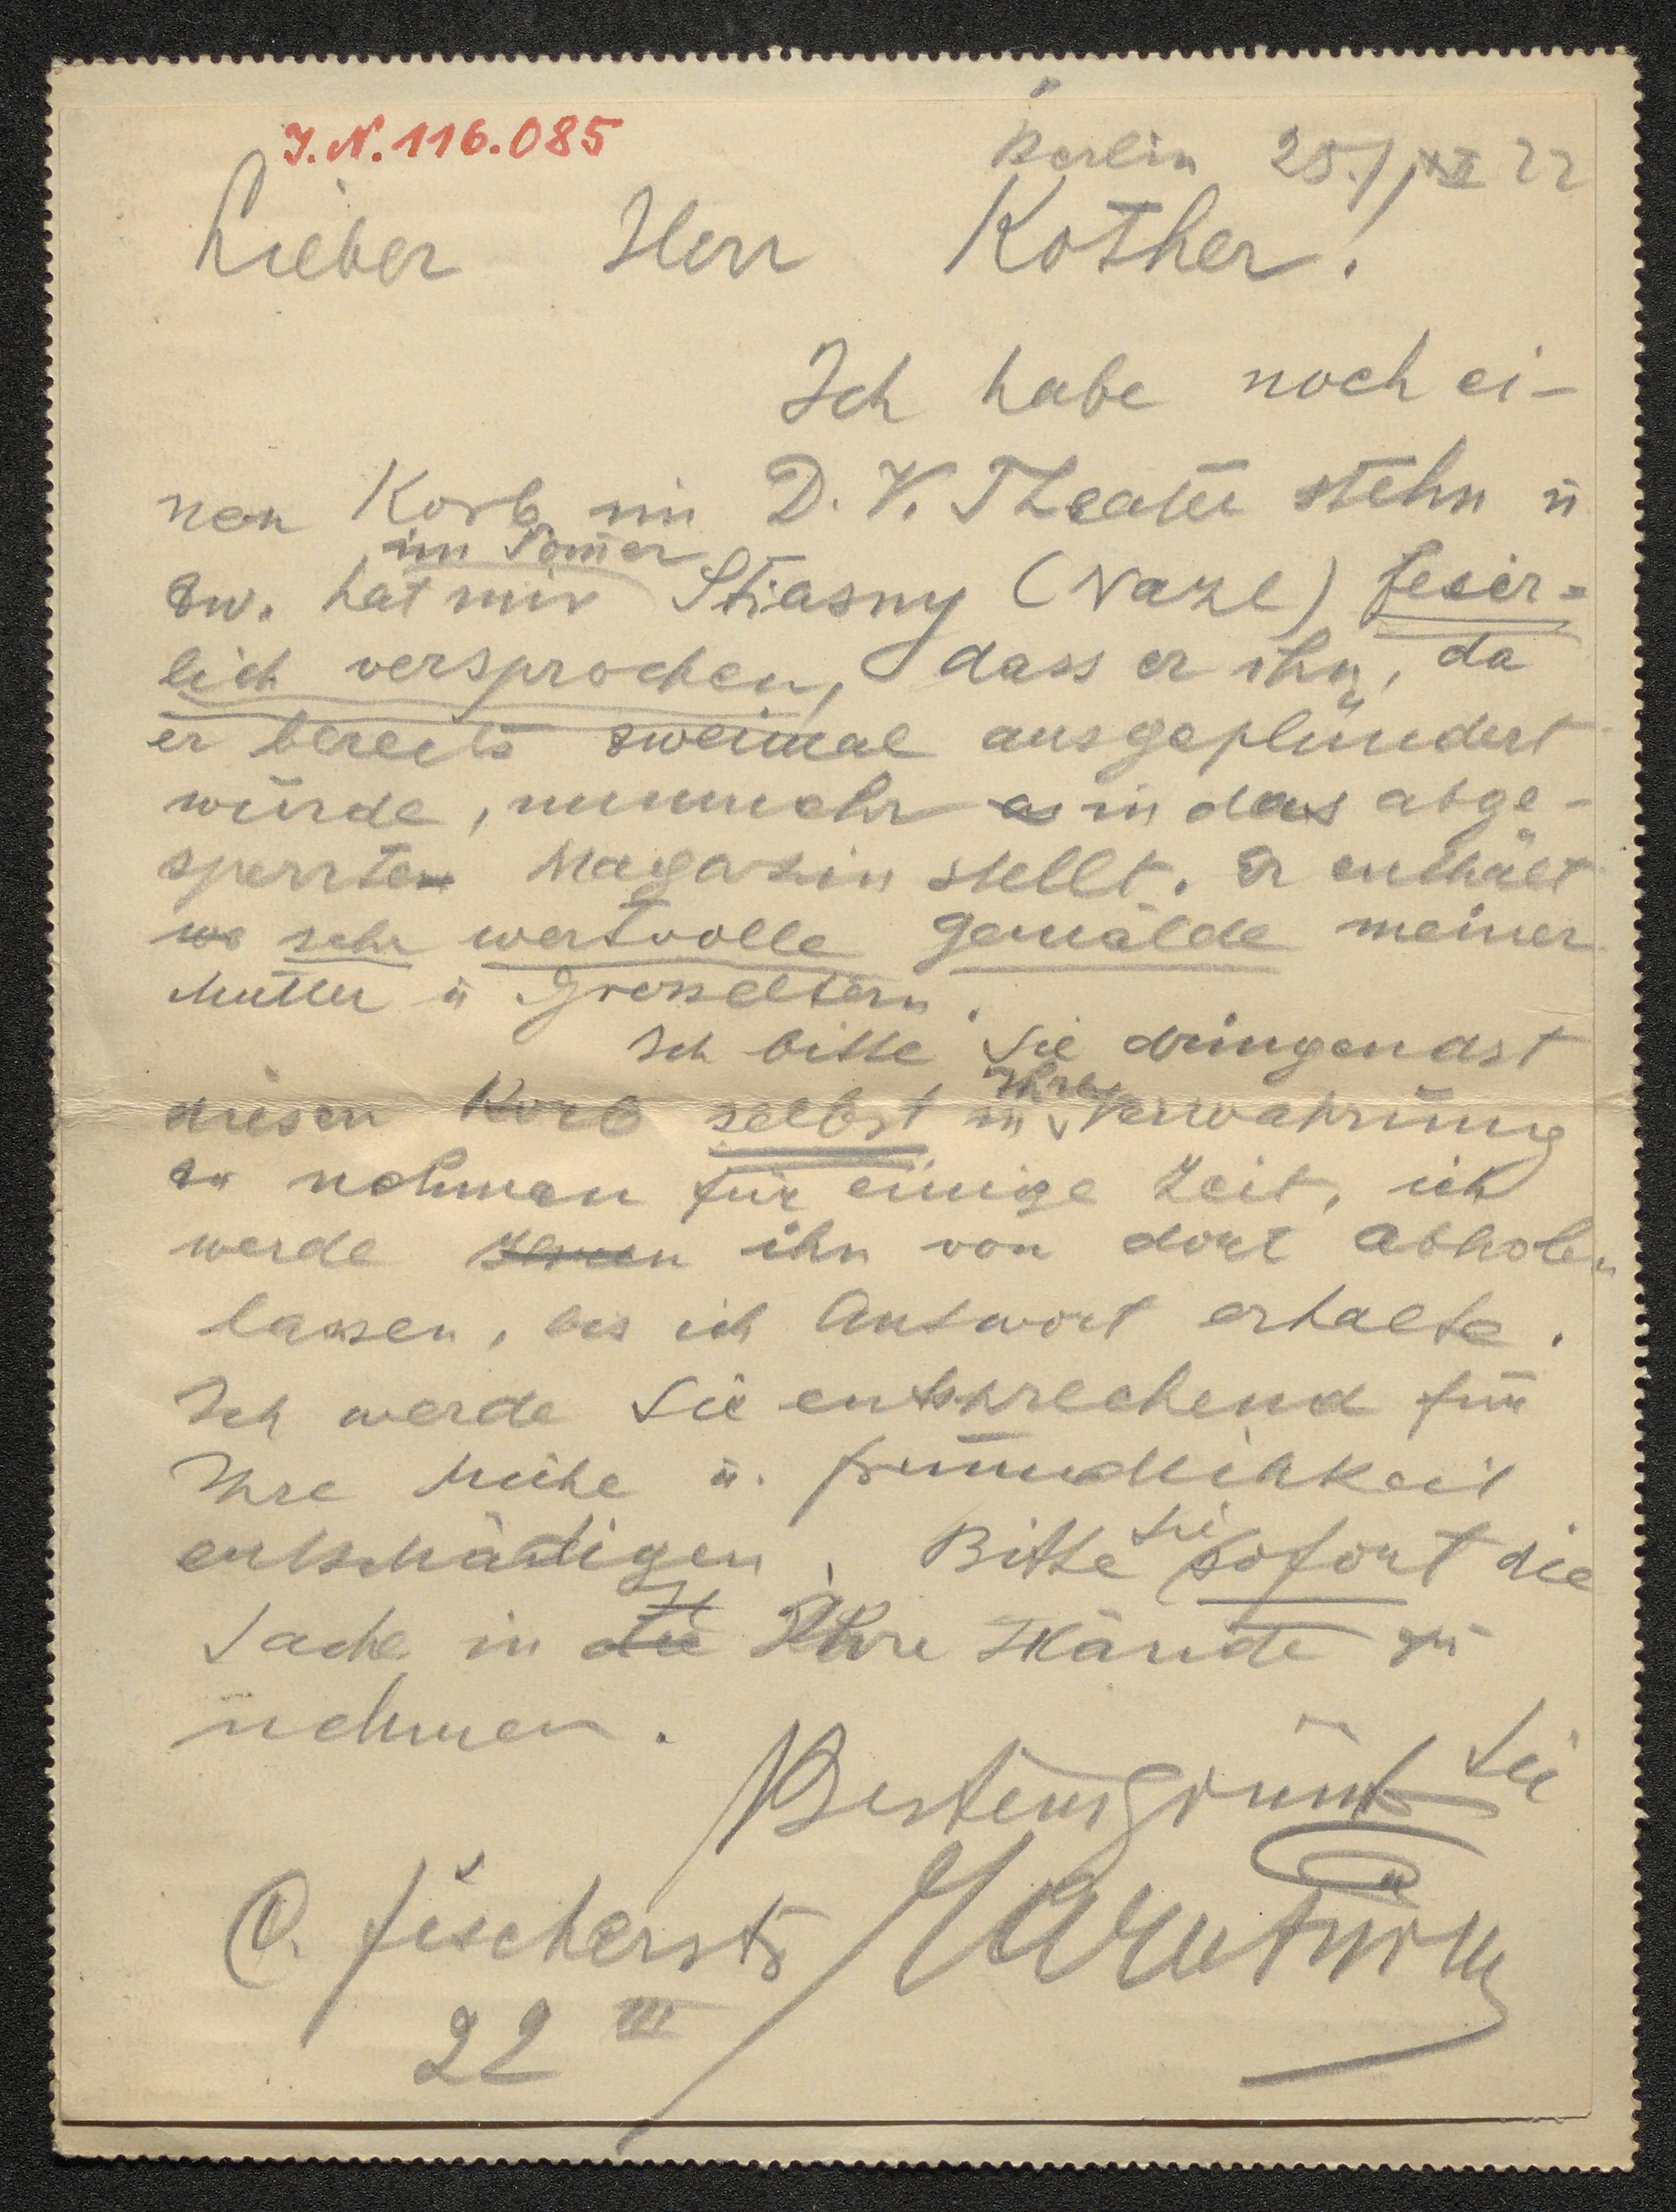 J.N. 116.085
Berlin 25./XII 22
Lieber Herr Kother!
Ich habe noch ei-
nen Korb im D. V. Theater stehn u
zw. hat mir im Somer Stiasny (Naze) feier=
lich versprochen, dass er ihn, da
er bereits zweimal ausgeplündert
wurde, nunmehr in das abge-
sperrte Magazin stellt. Er enthält
sehr wertvolle Gemälde meiner
Mutter u Grosseltern.
Ich bitte Sie dringendst
diesen Korb selbst in Ihre Verwahrung
zu nehmen für einige Zeit, ich
werde ihn von dort abholen
lassen, bis ich Antwort erhalte.
Ich werde Sie entsprechend für
Ihre Mühe u. Freundlichkeit
entschädigen. Bitte Sie sofort die
Sache in Ihre Hände zu
nehmen.
Bestens grüsst Sie
C. Fischerstr
22 III